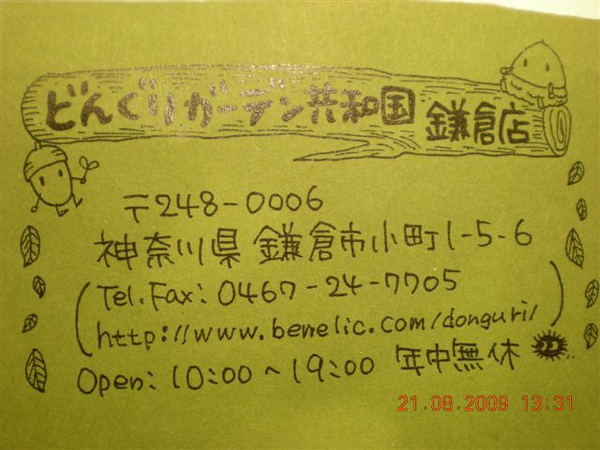 どんぐりガーデン共和国 鎌倉店
〒248-0006
神奈川県 鎌倉市小町1-5-6
(Tel.Fax: 0467-24-7705
http://www.benelic.com/donguri/)
Open: 10:00~19:00 年中無休
21.08.2009 13:31